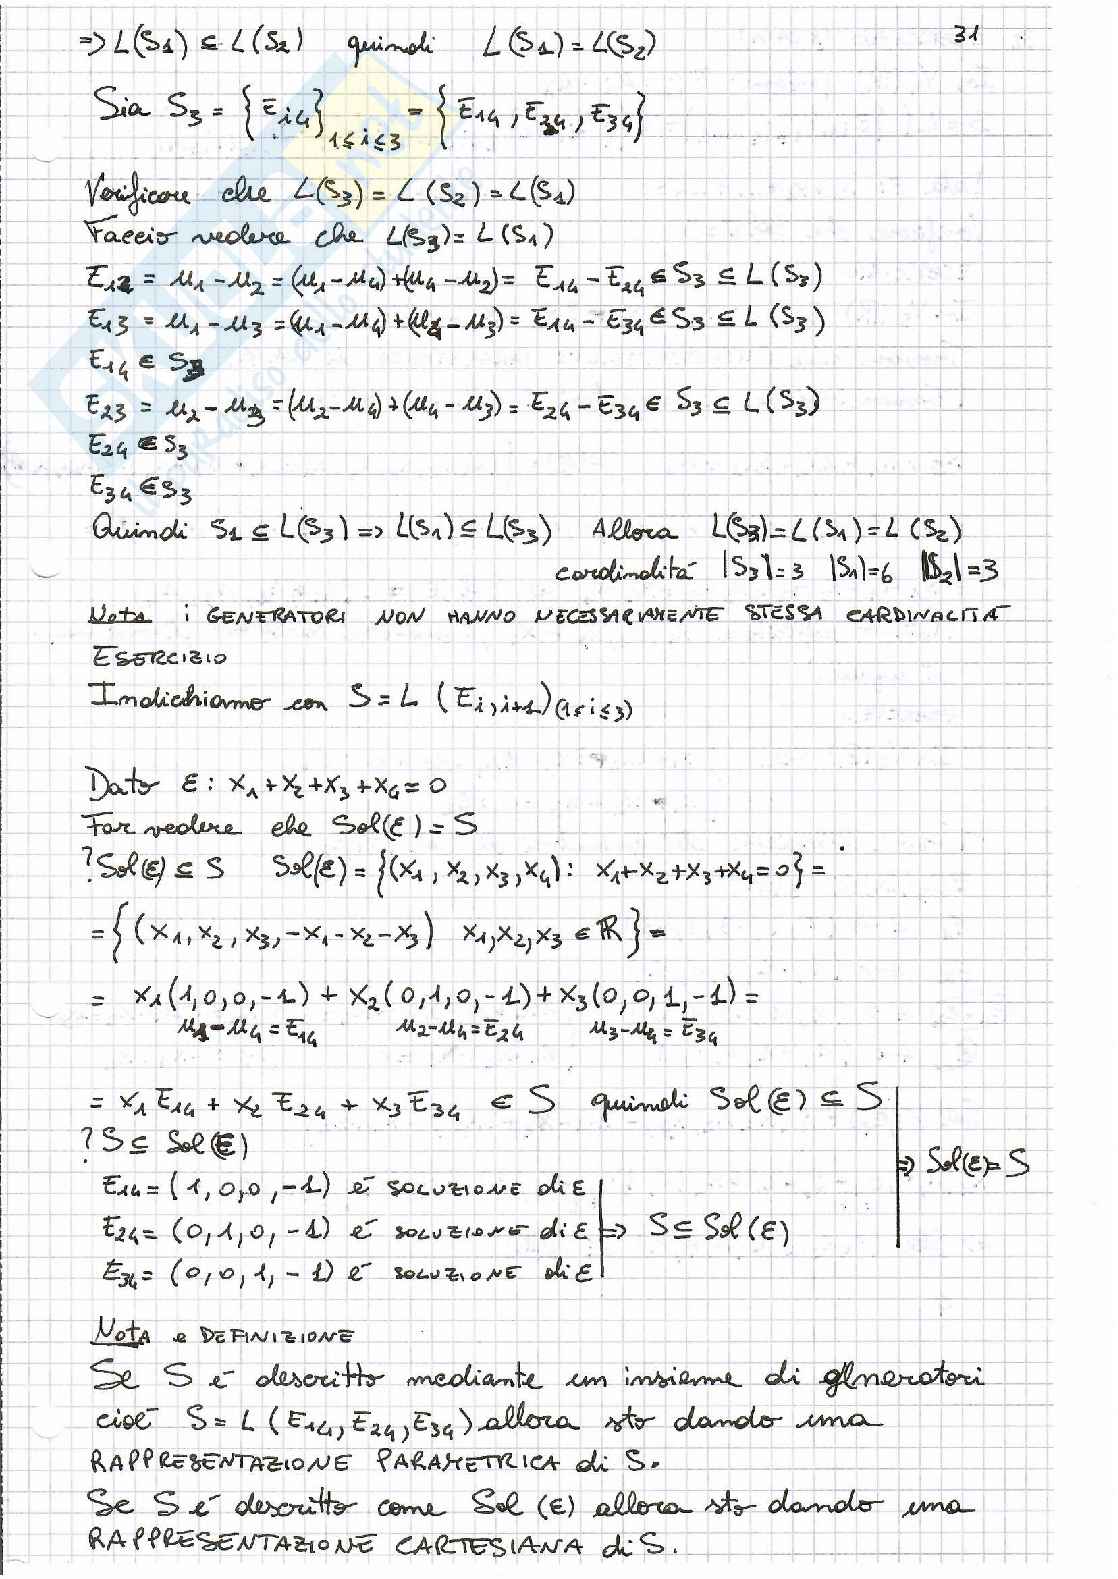 => L(S1) ⊆ L(S2) quindi L(S1) = L(S2) 31
Sia S3 = {Ei4}1≤i≤3 = {E14, E24, E34}
Verificare che L(S3) = L(S2) = L(S1)
Faccio vedere che L(S3) = L(S1)
E12 = u1 - u2 = (u1 - u4) + (u4 - u2) = E14 - E24 ∈ S3 ⊆ L(S3)
E13 = u1 - u3 = (u1 - u4) + (u4 - u3) = E14 - E34 ∈ S3 ⊆ L(S3)
E14 ∈ S3
E23 = u2 - u3 = (u2 - u4) + (u4 - u3) = E24 - E34 ∈ S3 ⊆ L(S3)
E24 ∈ S3
E34 ∈ S3
Quindi S1 ⊆ L(S3) => L(S1) ⊆ L(S3) Allora L(S3) = L(S1) = L(S2)
cardinalità |S3| = 3 |S1| = 6 |S2| = 3
Nota i GENERATORI NON HANNO NECESSARIAMENTE STESSA CARDINALITÀ
ESERCIZIO
Indichiamo con S = L (Ei,i+1)(1≤i≤3)
Dato ε: x1 + x2 + x3 + x4 = 0
Far vedere che Sol(ε) = S
? Sol(ε) ⊆ S Sol(ε) = {(x1, x2, x3, x4): x1+x2+x3+x4 = 0} =
= {(x1, x2, x3, -x1-x2-x3) x1,x2,x3 ∈ ℝ} =
= x1(1,0,0,-1) + x2(0,1,0,-1) + x3(0,0,1,-1) =
u1-u4 = E14 u2-u4 = E24 u3-u4 = E34
= x1 E14 + x2 E24 + x3 E34 ∈ S quindi Sol(ε) ⊆ S
? S ⊆ Sol(ε)
=> Sol(ε) = S
E14 = (1,0,0,-1) è SOLUZIONE di ε
E24 = (0,1,0,-1) è SOLUZIONE di ε => S ⊆ Sol(ε)
E34 = (0,0,1,-1) è SOLUZIONE di ε
Nota e DEFINIZIONE
Se S è descritto mediante un insieme di generatori
cioè S = L (E14, E24, E34) allora sto dando una
RAPPRESENTAZIONE PARAMETRICA di S.
Se S è descritto come Sol (ε) allora sto dando una
RAPPRESENTAZIONE CARTESIANA di S.